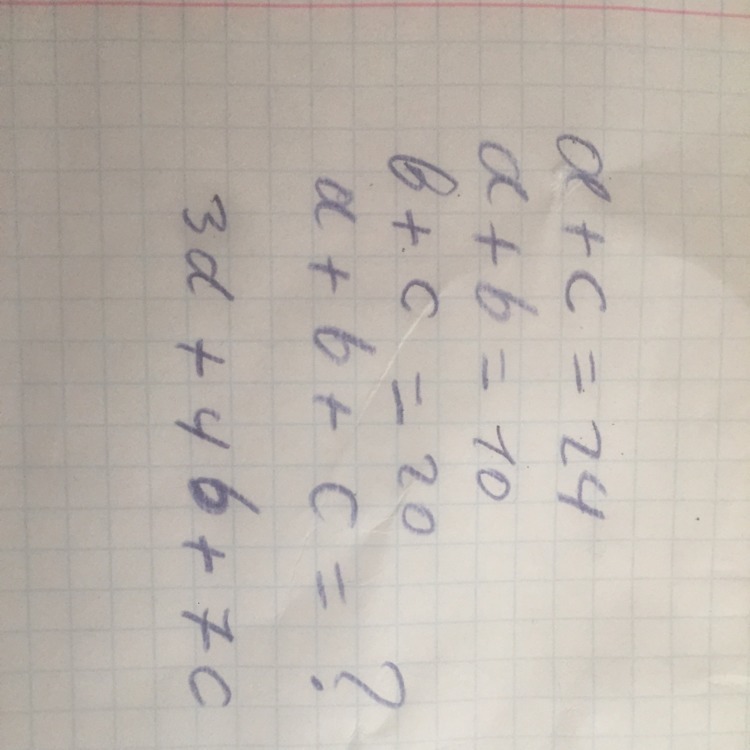 a + c = 24
a + b = 10
b + c = 20
a + b + c = ?
3a + 4b + 7c